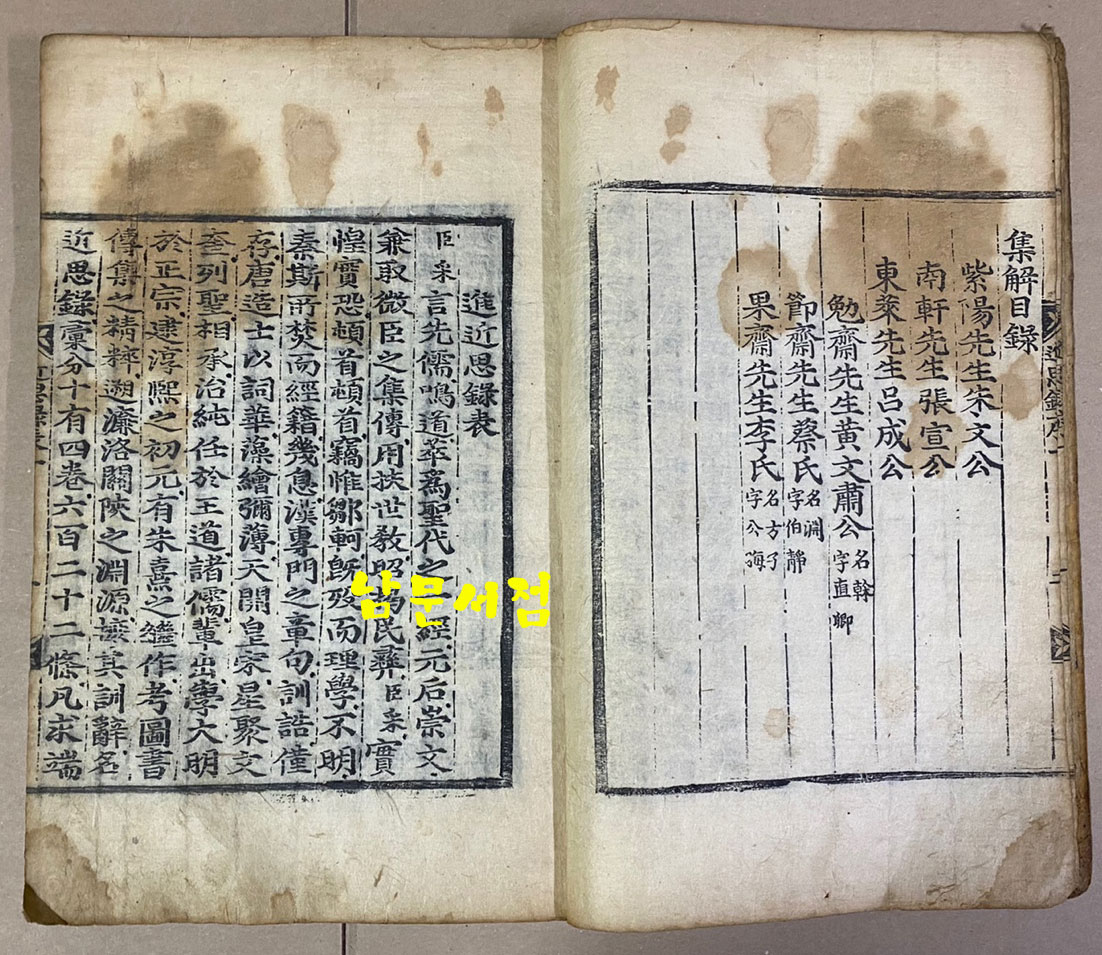 集解目錄
紫陽先生朱文公
南軒先生張宣公
東萊先生呂成公
勉齋先生黃文肅公 名榦 字直卿
節齋先生蔡氏 名淵 字伯靜
果齋先生李氏 名方子 字公晦
進近思錄表
臣采言先儒鳴道萃爲聖代之經元后崇文
兼取微臣之集傳用扶世敎昭揭民彝臣采實
惶實恐頓首頓首竊惟鄒軻旣歿而理學不明
秦斯所焚而經籍幾息漢專門之章句訓誥僅
存唐造士以詞華藻繪彌薄天開皇宋星聚文
奎列聖相承治純任於王道諸儒輩出學大明
於正宗逮淳熙之初元有朱熹之繼作考圖書
傳集之精粹遡濂洛關陜之淵源摭其訓辭名
近思錄彙分十有四卷六百二十二條凡求端
남문서점